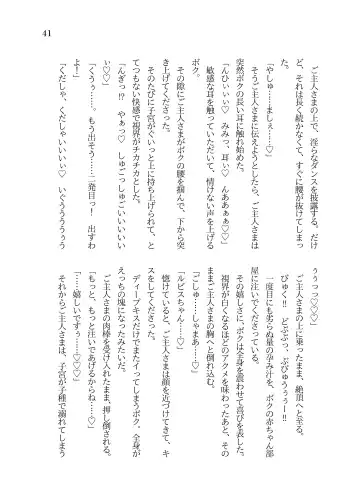 41
ご主人さまの上で、淫らなダンスを披露する。だけ
ど、それは長く続かなくて、すぐに腰が抜けてしまっ
た。
「やしゅ……ましぇ……♡」
そうご主人さまに伝えようとしたら、ご主人さまは
突然ボクの長い耳に触れ始めた。
「んひぃぃぃ♡ みみっ、耳ぃ♡ んああぁぁ♡♡」
敏感な耳を触っていただいて、情けない声を上げる
ボク。
その隙にご主人さまがボクの腰を掴んで、下から突
き上げてくださった。
そのたびに子宮がぐいっと上に持ち上げられて、と
てつもない快感で視界がチカチカとした。
「んぎっ!? やぁっ♡ しゅごっしゅごいいいいい
ぃ♡♡」
「くうぅ……。もう出そう……二発目っ! 出すわ
よ!」
「くだしゃ、くだしゃいいいぃ♡ いぐうううううう
ううっっ♡♡♡♡」
ご主人さまの上に乗ったまま、絶頂へと至る。
びゅく!! どぷぷぷっ、ぶびゅうぅぅー!!
一度目にも劣らぬ量の孕み汁を、ボクの赤ちゃん部
屋に注いでくださっている。
その嬉しさに、ボクは全身を震わせて喜びを表した。
視界が白くなるほどのアクメを味わったあと、その
ままご主人さまの胸へと倒れ込む。
「ごしゅ……しゃまあ……♡」
「ルビスちゃん……♡」
惚けていると、ご主人さまは顔を近づけてきて、キ
スをしてくださった。
ディープキスだけでまたイってしまうボク。全身が
えっちの塊になったみたいだ。
ご主人さまの肉棒を受け入れたまま、押し倒される。
「もっと、もっと注いであげるからね……♡」
「……嬉しいですぅ……♡♡♡」
それからご主人さまは、子宮が子種で溺れてしまう